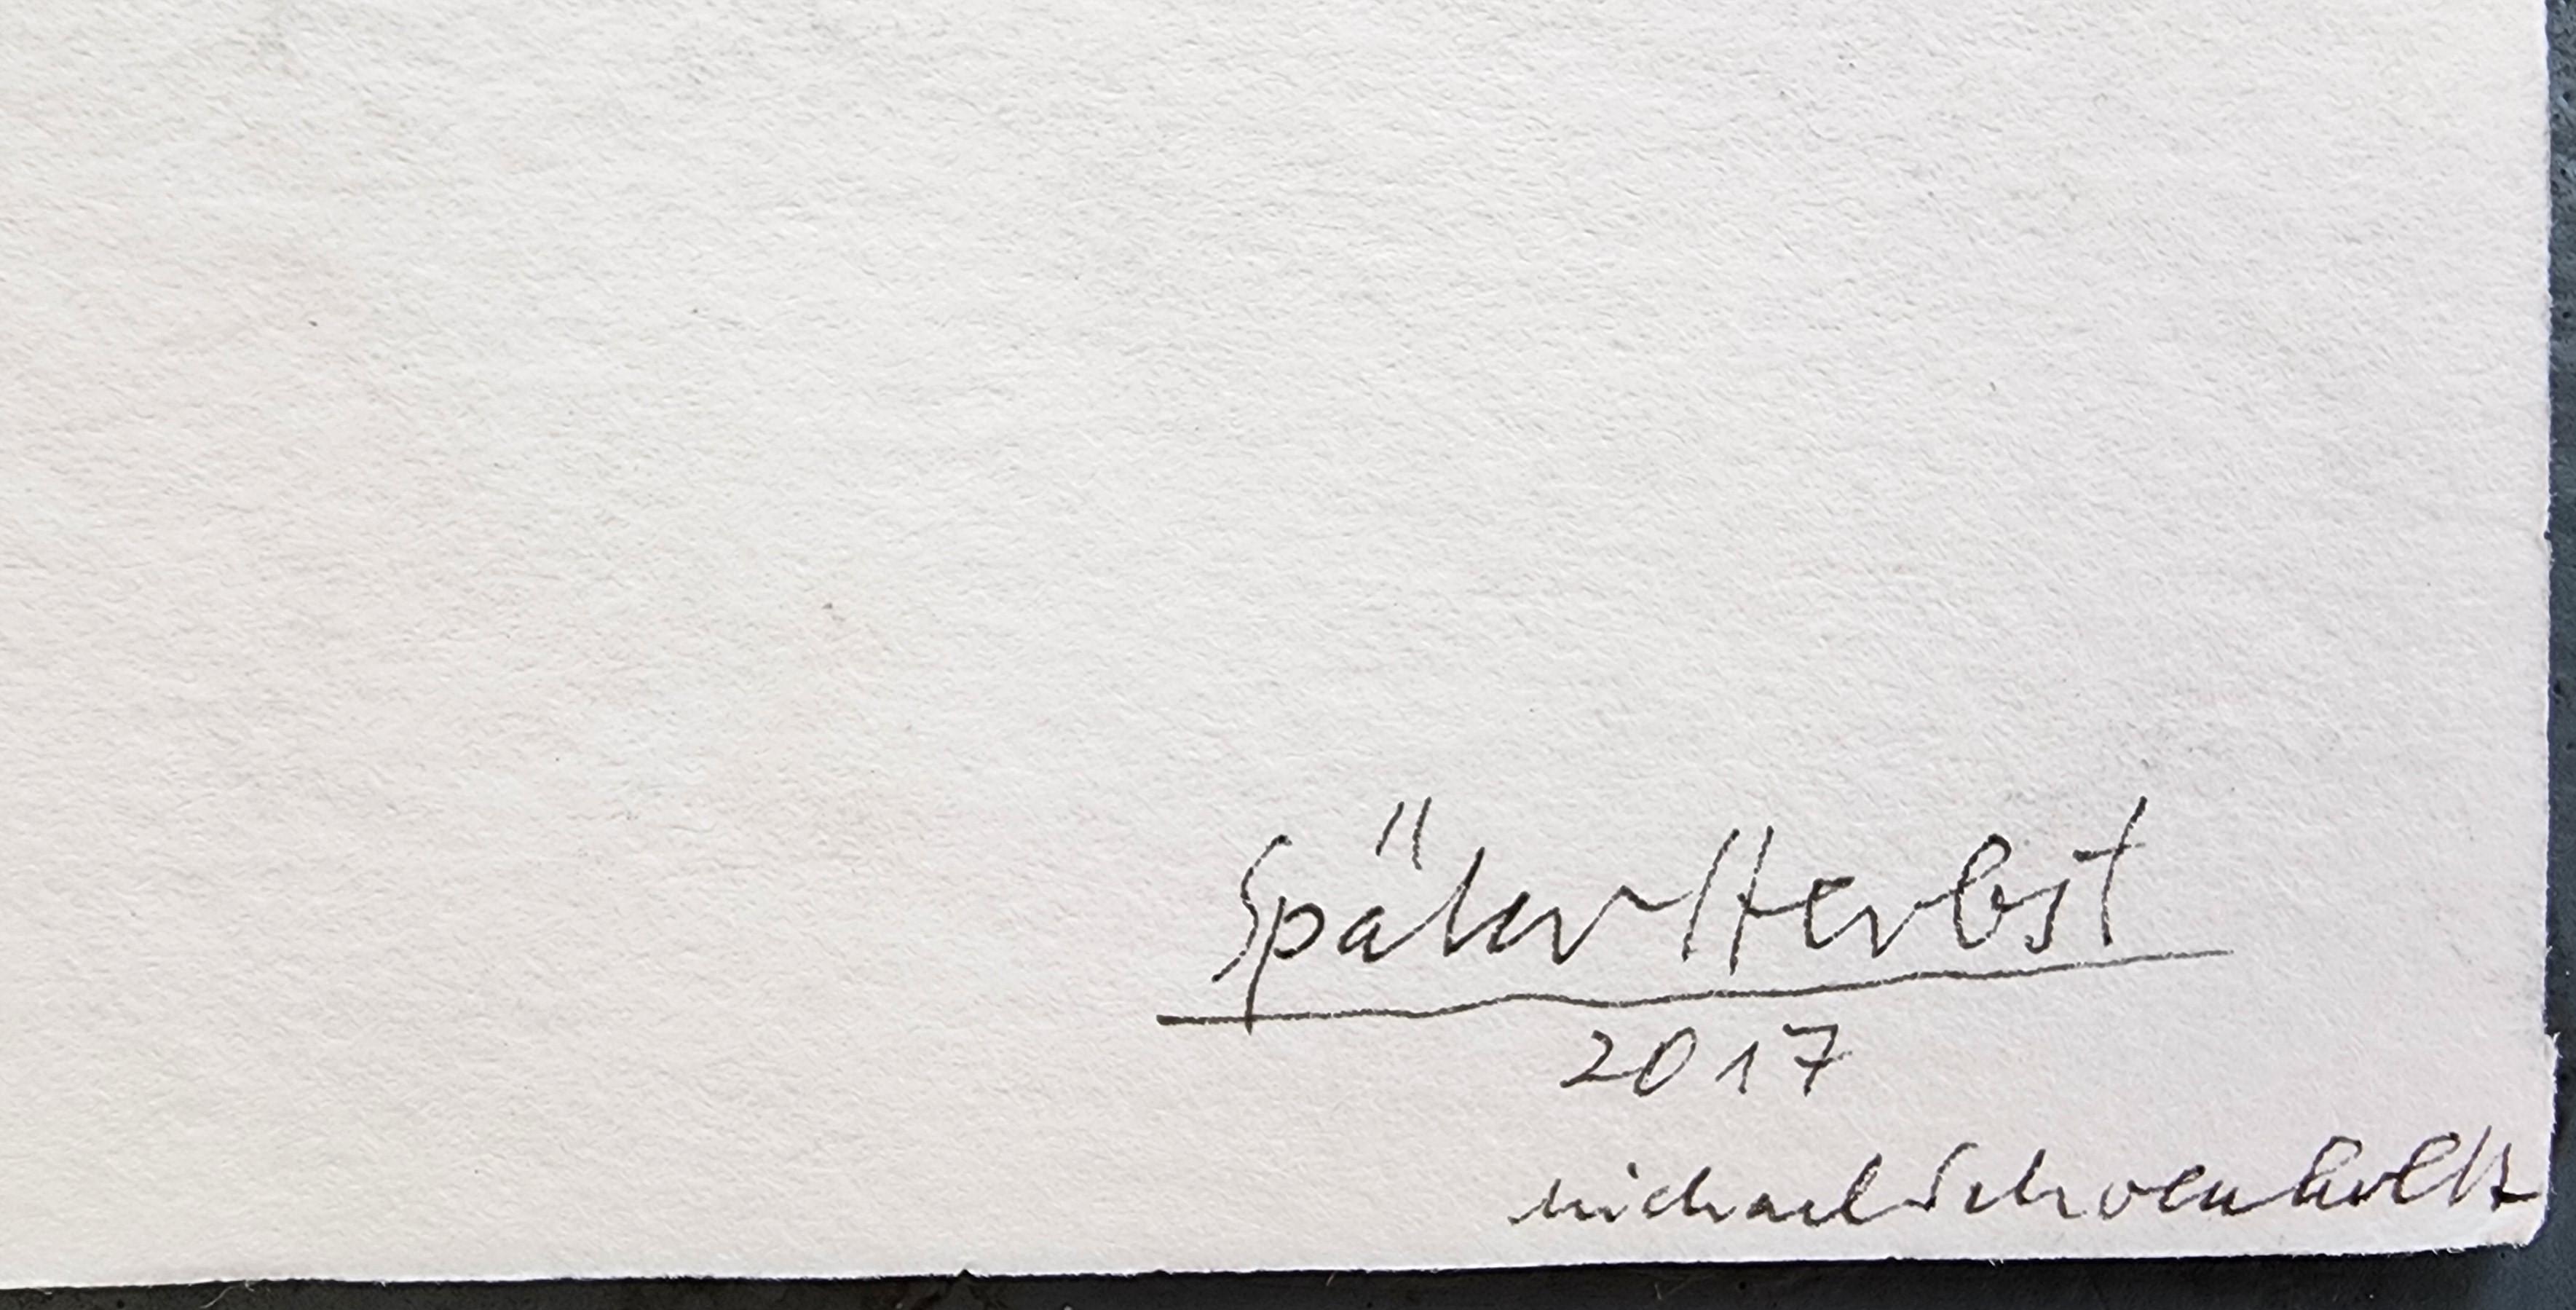 Später Herbst
2017
michael Schoenholtz